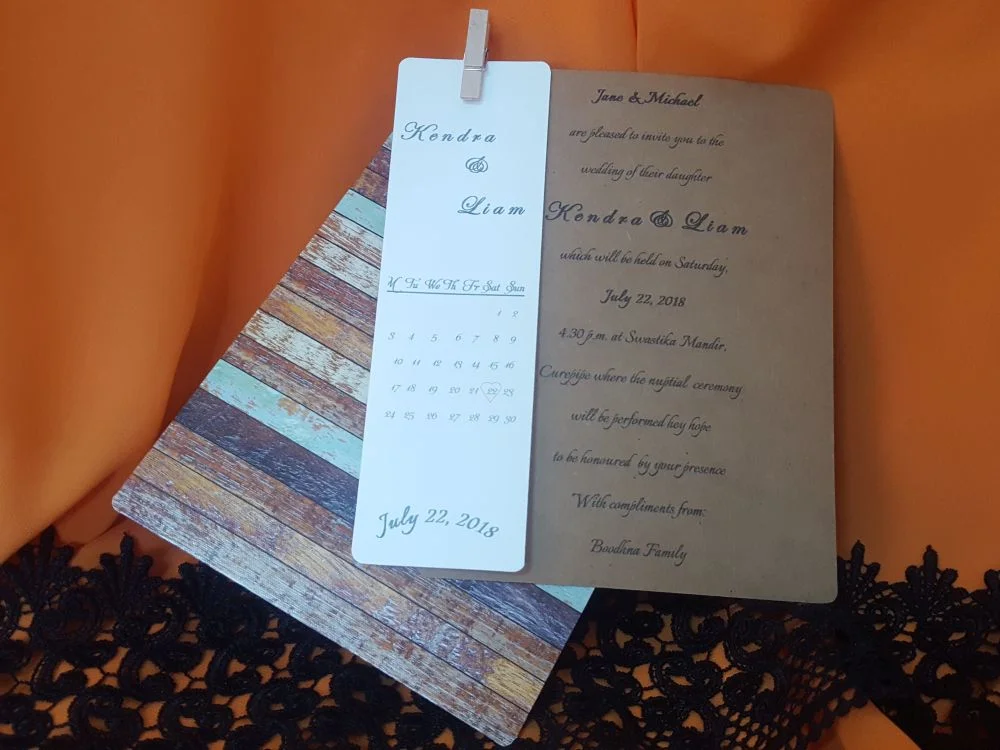 Kendra
&
Liam
M Tu We Th Fr Sat Sun
1 2
3 4 5 6 7 8 9
10 11 12 13 14 15 16
17 18 19 20 21 22 23
24 25 26 27 28 29 30
July 22, 2018
Jane & Michael
are pleased to invite you to the
wedding of their daughter
Kendra & Liam
which will be held on Saturday,
July 22, 2018
4.30 p.m. at Swastika Mandir,
Curepipe where the nuptial ceremony
will be performed hey hope
to be honoured by your presence
"With compliments from:
Boodhna Family